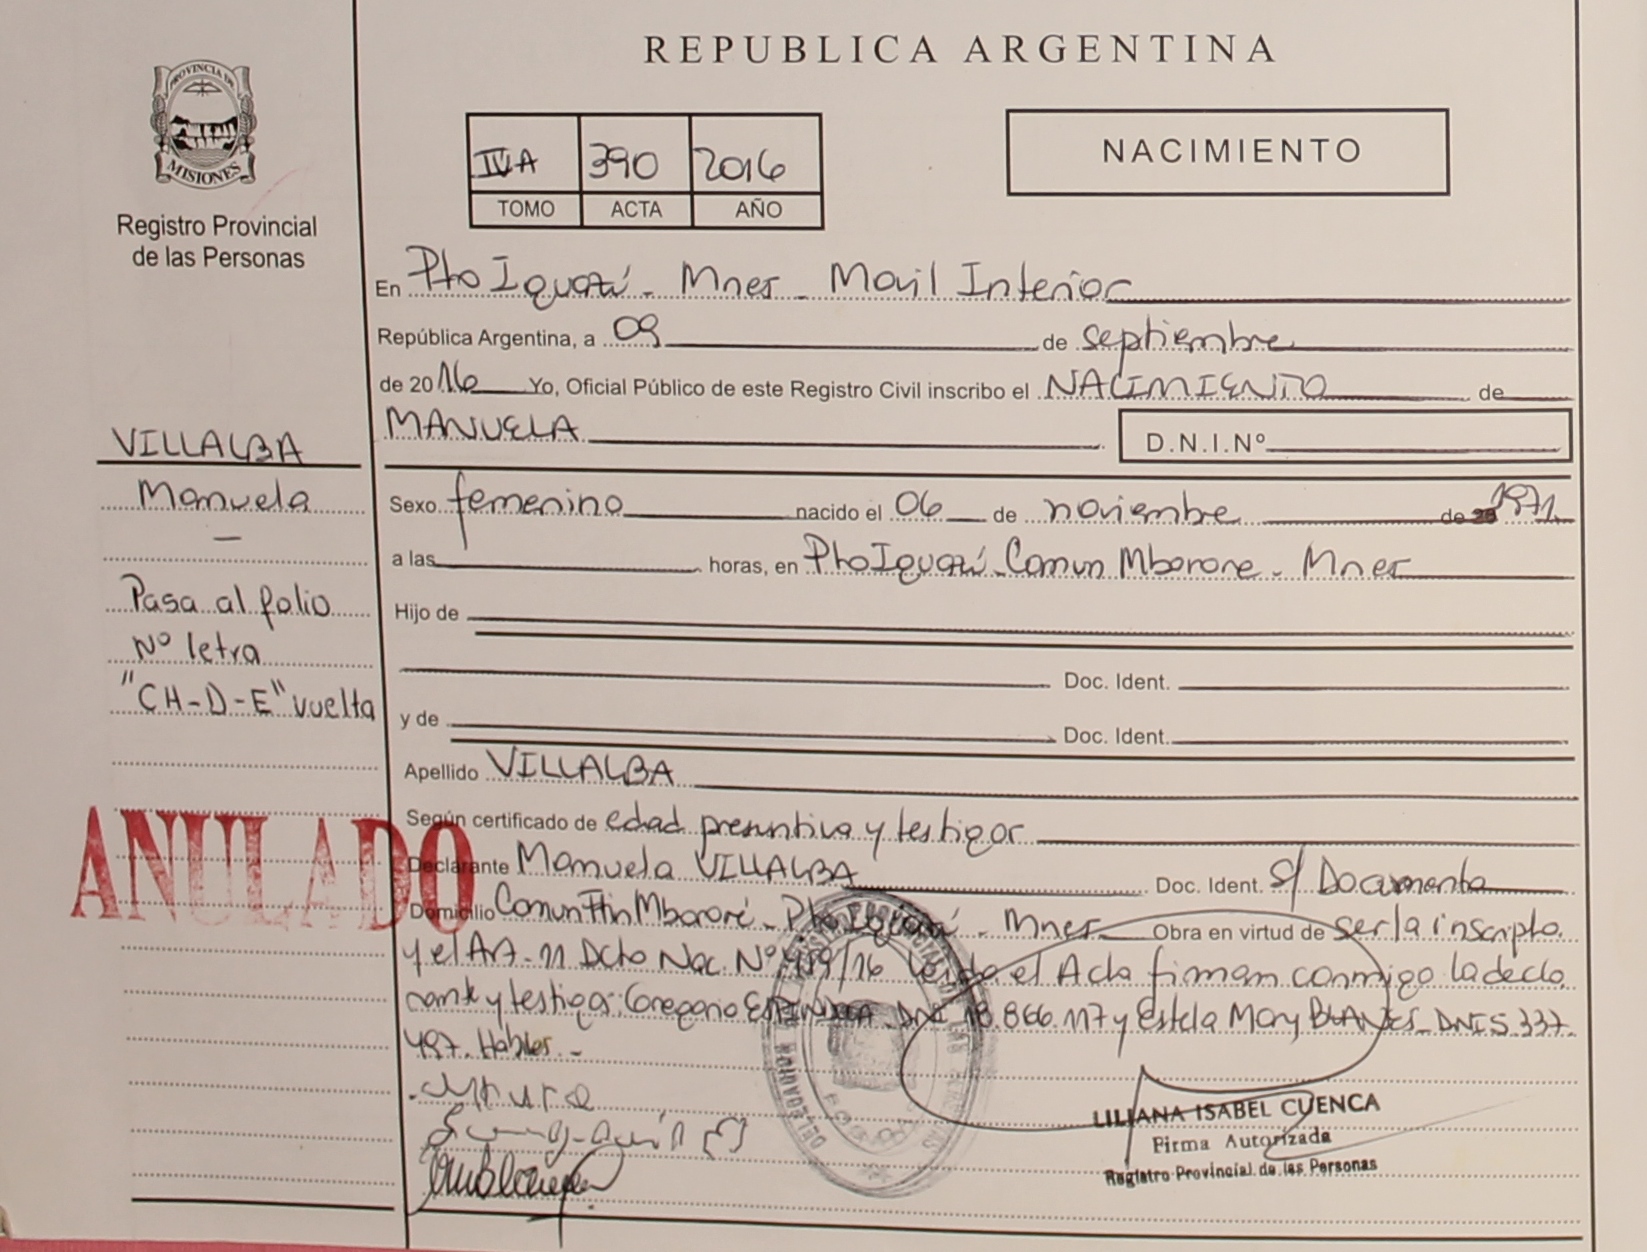 REPUBLICA ARGENTINA
PROVINCIA DE
MISIONES
Registro Provincial
de las Personas
IV A 390 2016
TOMO ACTA AÑO
NACIMIENTO
En Pto Iguazú - Mnes - Movil Interior
República Argentina, a 09 de septiembre
de 2016 Yo, Oficial Público de este Registro Civil inscribo el NACIMIENTO de
MANUELA D.N.I.Nº
VILLALBA
Manuela
Pasa al folio
Nº letra
"CH-D-E" vuelta
ANULADO
Sexo femenino nacido el 06 de noviembre de 1971
a las horas, en Pto Iguazú - Comun Mborore - Mnes
Hijo de
Doc. Ident.
y de Doc. Ident.
Apellido VILLALBA
Según certificado de edad presuntiva y testigos
Declarante Manuela VILLALBA Doc. Ident. S/ Documento
Domicilio Comun Mbororé - Pto Iguazú - Mnes Obra en virtud de ser la inscripta
y el Art. 11 Dcto Nac. Nº 459/16 Leida el Acta firman conmigo la decla
rante y testigos: Gregorio DNI 18.866.117 y Estela Mary DNI 5.337.
497. Hables.-
LILIANA ISABEL CUENCA
Firma Autorizada
Registro Provincial de las Personas